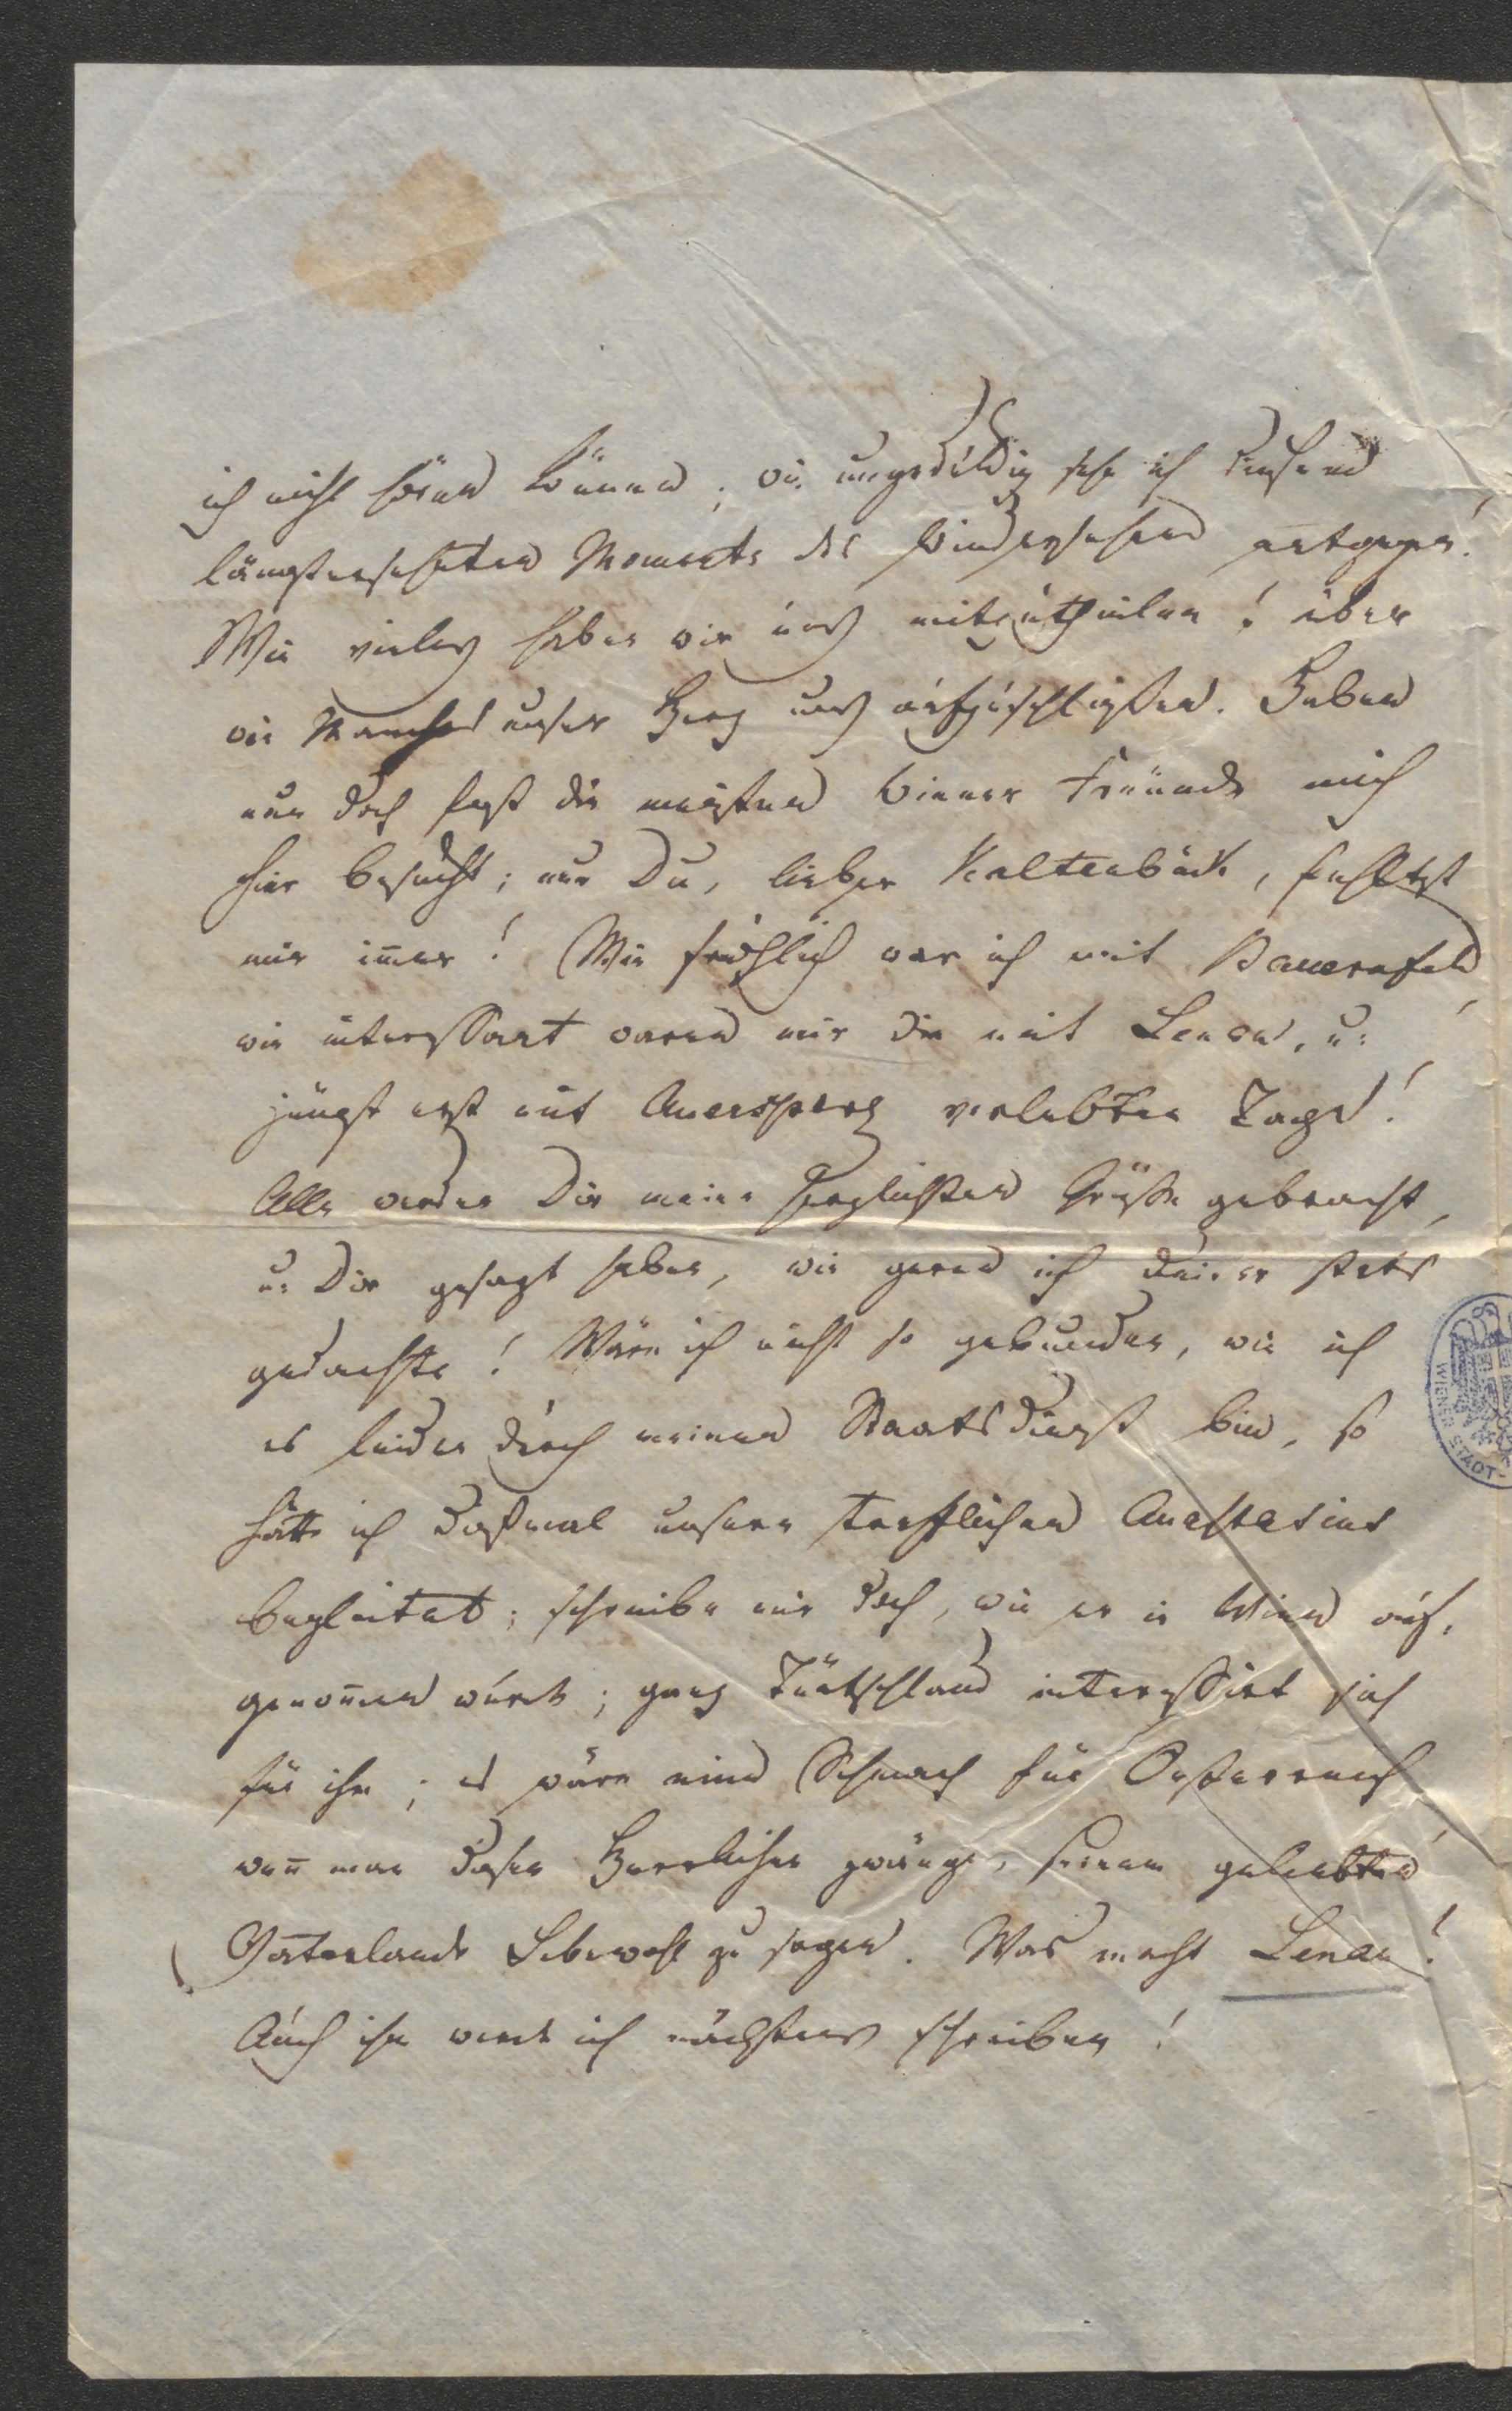 ich nicht hören können; wie ungeduldig sehe ich diesem
längstersehnten Momente des Wiedersehens entgegen!
Wie vieles haben wir uns mitzutheilen! über
wie Manches unser Herz uns aufzuschließen. Haben
nun doch fast die meisten Wiener Freünde mich
hier besucht; nur Du, lieber Kaltenbäck, fehltest
mir im̄er! Wie fröhlich war ich mit Bauernfeld
wie interessant waren mir die mit Lenau, u:
jüngst erst mit Auersperg verlebten Tage!
Alle werden Dir meine herzlichsten Grüße gebracht,
u: Dir gesagt haben, wie gern ich Deiner stets
gedachte! Wäre ich nicht so gebunden, wie ich
es leider durch meinen Staatsdienst bin, so
hätte ich dießmal unsern trefflichen Anastasius
begleitet; schreibe mir doch, wie er in Wien auf-
genom̄en wurde; ganz Teütschland interessirt sich
für ihn; es wäre eine Schmach für Oesterreich
wen̄ man diesen Herrlichen zwänge, seinem geliebten
Vaterlande Lebewohl zu sagen. Was macht Lenau?
Auch ihm werde ich nächstens schreiben!
WIENER STADT-